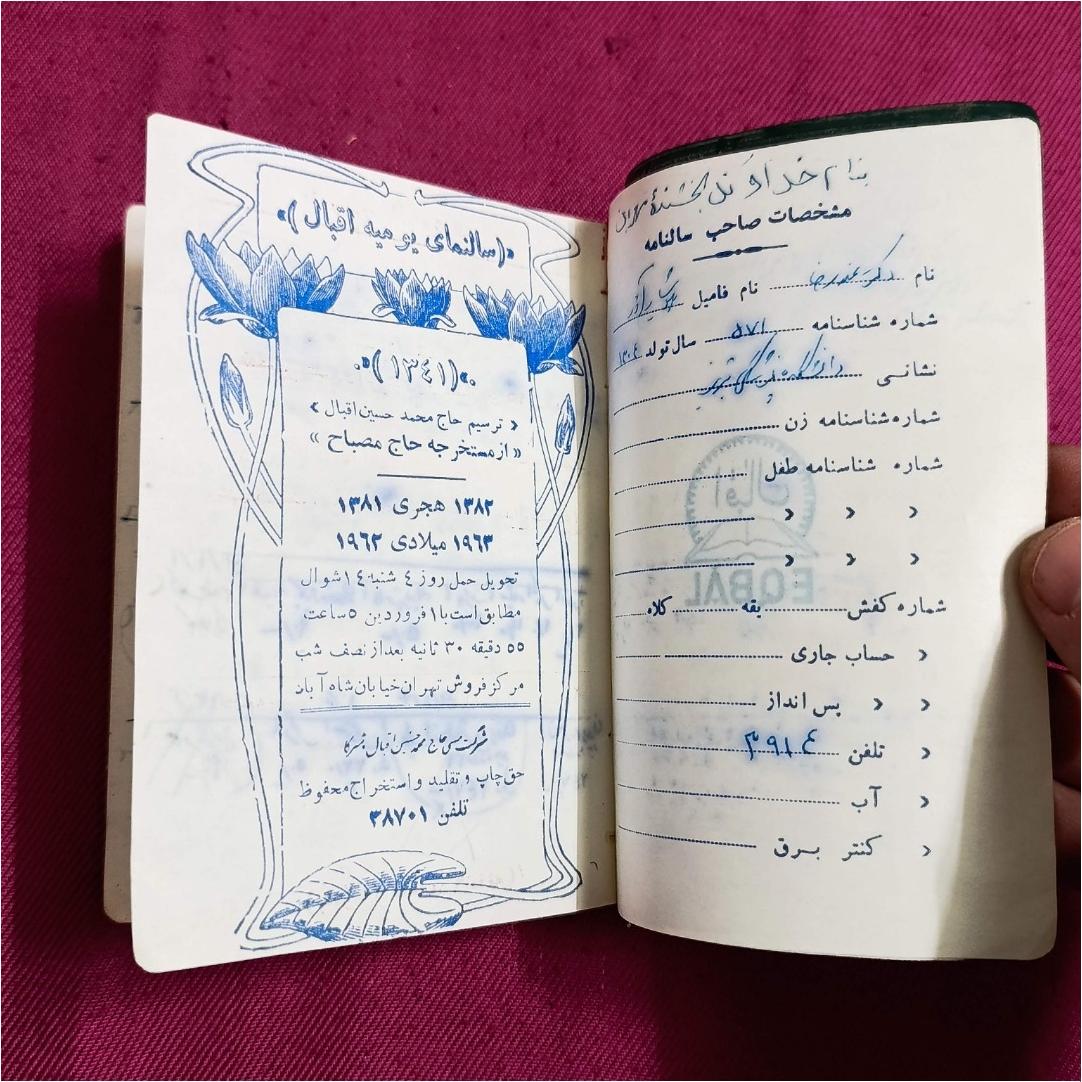 «(سالنمای یومیه اقبال)»
«(١٣٤١)»
« ترسیم حاج محمد حسین اقبال »
« از مستخرجه حاج مصباح »
١٣٨٢ هجری ١٣٨١
١٩٦٣ میلادی ١٩٦٢
تحویل حمل روز ٤ شنبه ١٤ شوال
مطابق است با ١ فروردین ٥ ساعت
٥٥ دقیقه ٣٠ ثانیه بعد از نصف شب
مرکز فروش تهران خیابان شاه آباد
شرکت نسبی حاج محمد حسین اقبال و شرکا
حق چاپ و تقلید و استخراج محفوظ
تلفن ٣٨٧٠١
بنام خداوند بخشندهٔ مهربان
مشخصات صاحب سالنامه
نام دکتر نام فامیل
شماره شناسنامه ٥٧١ سال تولد ١٣٠٤
نشانی دانشکده پزشکی تبریز
شماره شناسنامه زن
شماره شناسنامه طفل
« « «
« « «
شماره کفش یقه کلاه
« حساب جاری
« « پس انداز
« تلفن ٣٩١٤
« آب
« کنتر برق
اقبال
EQBAL